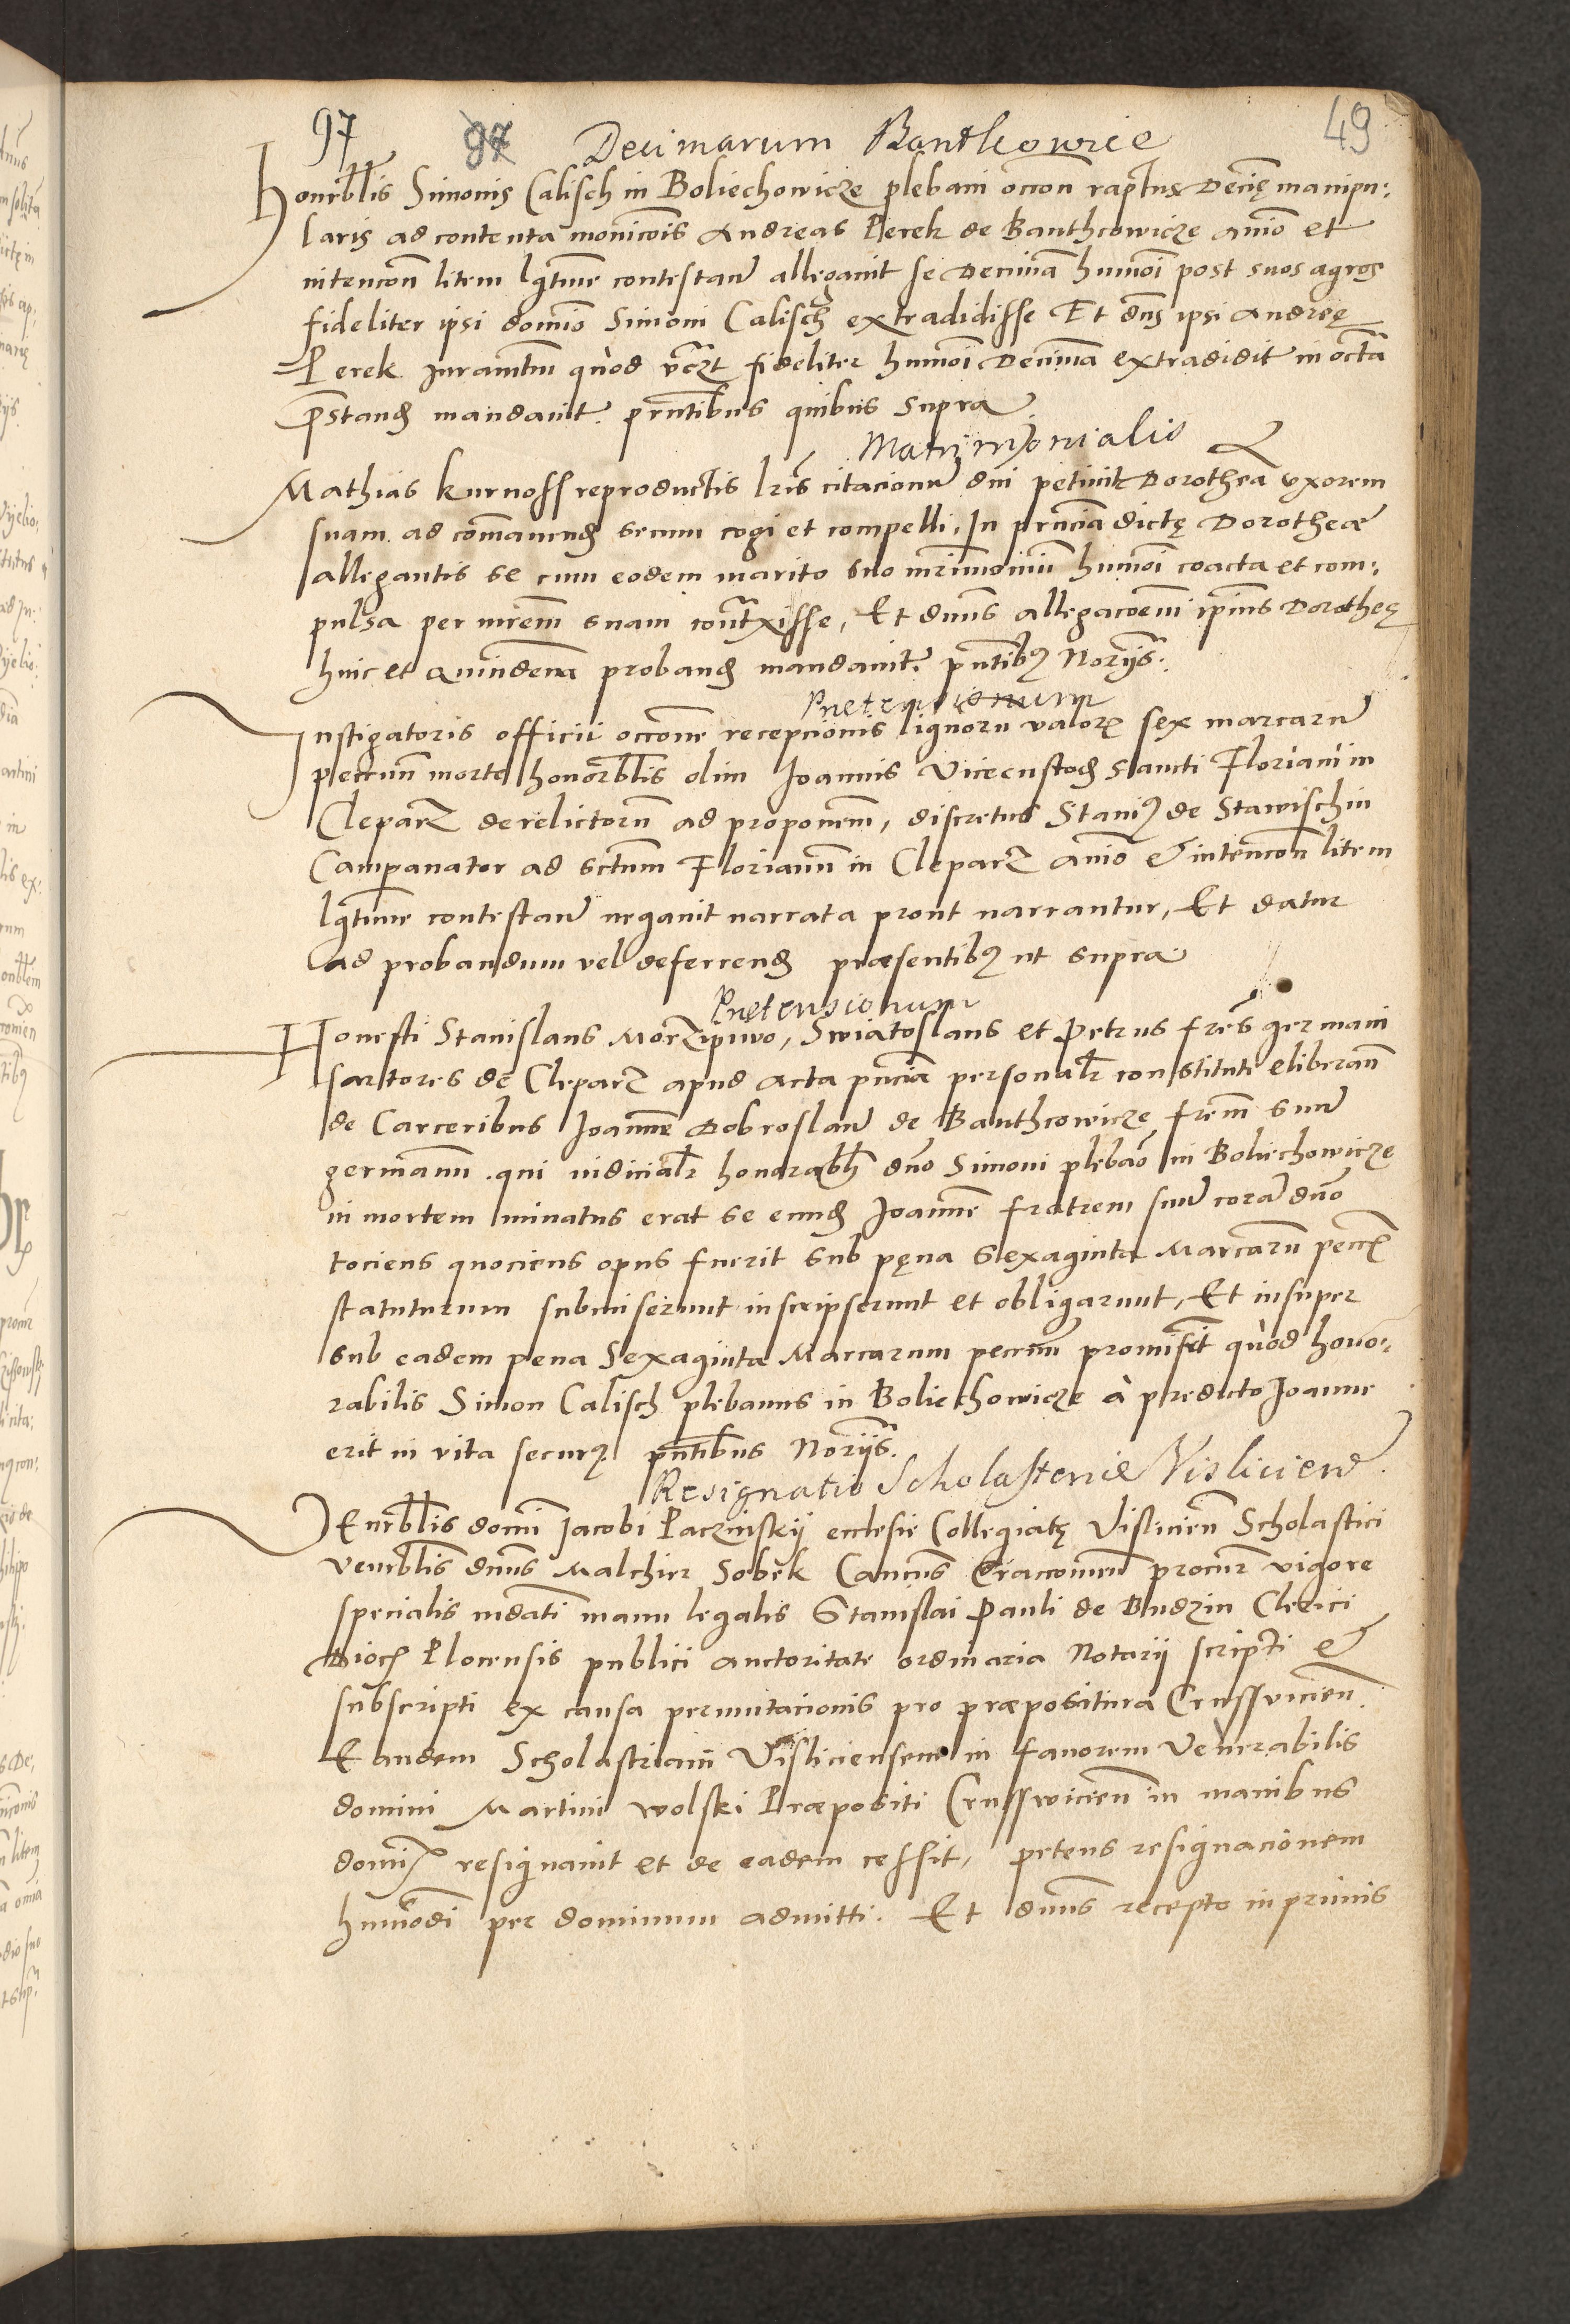 97 97 Decimarum Banthcowice 49
Honorbłlis Simonis Calisch in Boliechowicze plebani occon raptus Decię manipu:
laris ad contenta monicois Andreas Perek de Banthcowicze animo et
intencon litem lgtime contestan allegavit se Decimā humoi post suos agros
fideliter ipsi domino Simoni Calisch extradidisse Et dns ipsi Andreę
Perek Juramtum quod fideliter humoi Decimā extradidit in octa
pstand mandavit. pntibus quibus supra
Matrimonialis
Mathias kurnoss reproductis lris citacionū dni petiuit Dorotheā vxorem
suam ad comanend secum cogi et compelli, In pnciā dictę Dorotheæ
allegantis se cum eodem marito suo mrimonium humoi coacta et com:
pulsa per mrem suam contxisse, Et dnus allegacoem ipsius Dorotheę
huic et quindena proband mandavit. pntibus Norijs.
Pretensionum
Instigatoris officii occone recepcionis lignoru valor sex marcarū
pecun morte honorblis olim Joannis Vicecustod sancti Floriani in
Cleparz derelictorū ad proponem, discretus Stanis de Stawischin
Campanator ad sctum Florianū in Cleparz animo & intencon litem
lgtime contestan negavit narrata prout narrantur, Et datur
ad probandum vel deferrend præsentibus ut supra
Pretensionum
Honesti Stanislaus Morzipiwo, Swiatoslaus et Petrus fres germani
sartores de Cleparz apud acta pnciā personalr constituti eliberan
de Carceribus Joannē Dobroslaū de Banthcowicze frem suū
germanū qui iudicialr honorabli dno Simoni plebāo in Boliechowicze
in mortem minatus erat se eund Joannē fratrem suū corā dno
tociens quociens opus fuerit sub pęna Sexaginta Marcarū pecc
statuturum submiserunt inscripserunt et obligarunt, Et insuper
sub eadem pena Sexaginta Marcarum pecun promisit quod hono:
rabilis Simon Calisch plebanus in Boliechowicze à predicto Joanne
erit in vita securus pntibus Norijs.
Resignatio Scholasterie Visliciens
Venerblis domi Jacobi Paczinskij ecclesie Collegiatę Vislicien Scholastici
venerblis dnus Malchier Sobek Canoncus Cracouien procur vigore
specialis mdati manu legalis Stanislai Pauli de Budzin Clerici
Dioc Plocensis publici auctoritate ordinaria Notarij scripti &
subscripti ex causa permutacionis pro præpositura Crusvicien
Eandem Scholastriam Visliciensem in favorem Venerabilis
domini Martini Wolski Præpositi Crusswicien in manibus
domi resignavit et de eadem cessit, petens resignacionem
humodi per dominum admitti. Et dnus recepto inprimis